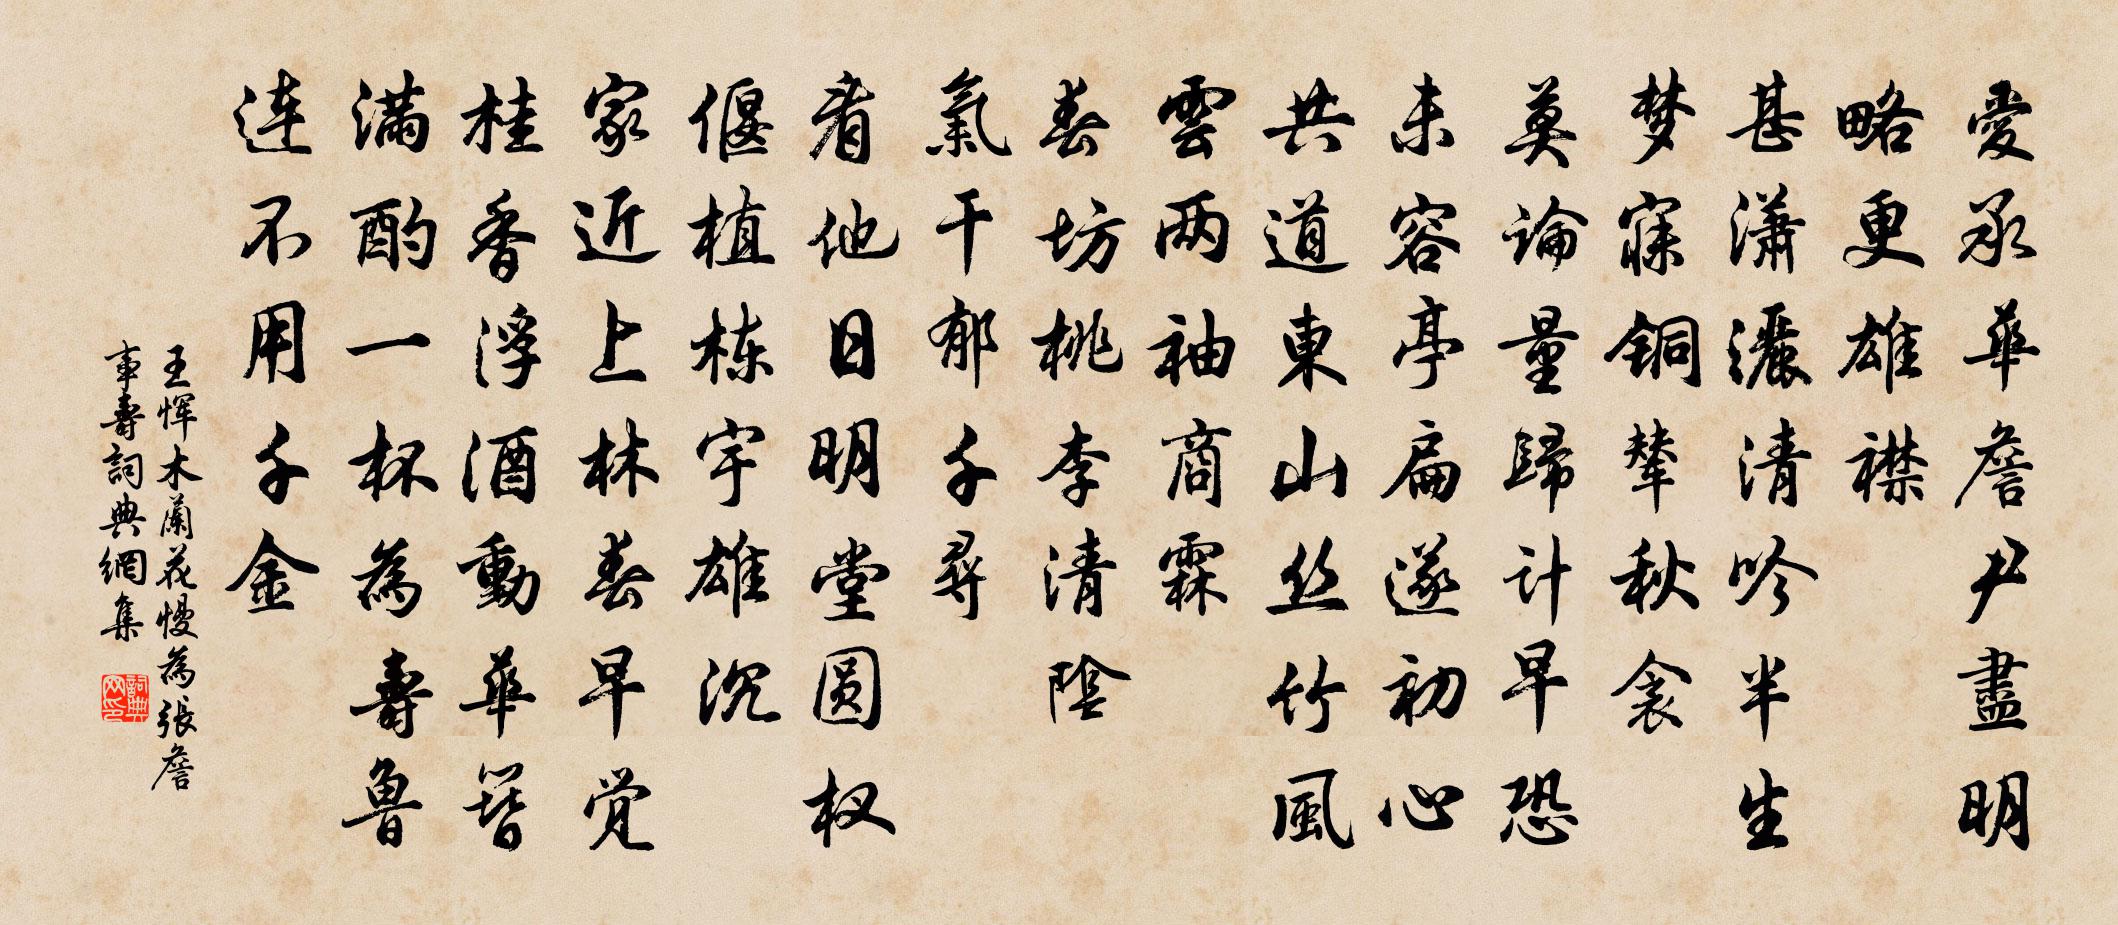 愛承華詹尹盡明
略更雄襟
甚瀟灑清吟半生
梦寐铜輦秋衾
莫論量歸计早恐
未容亭扁遂初心
共道東山丝竹風
雲两袖商霖
春坊桃李清陰
氣干郁千尋
看他日明堂圆杈
偃植栋宇雄沉
家近上林春早觉
桂香浮酒動華簪
满酌一杯為壽魯
连不用千金
王恽木蘭花慢為張詹
事壽詞典網集
詞典网印